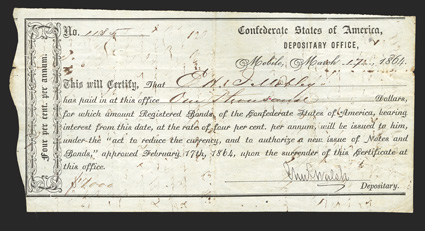 No.
Confederate States of America,
DEPOSITARY OFFICE,
Mobile, March 17th, 1864.
This will Certify, That
has paid in at this office One Thousand Dollars,
for which amount Registered Bonds, of the Confederate States of America, bearing
interest from this date, at the rate of four per cent. per annum, will be issued to him,
under the "act to reduce the currency, and to authorize a new issue of Notes and
Bonds," approved February 17th, 1864, upon the surrender of this Certificate at
this office.
$1000
Depositary.
Four per cent. per annum.